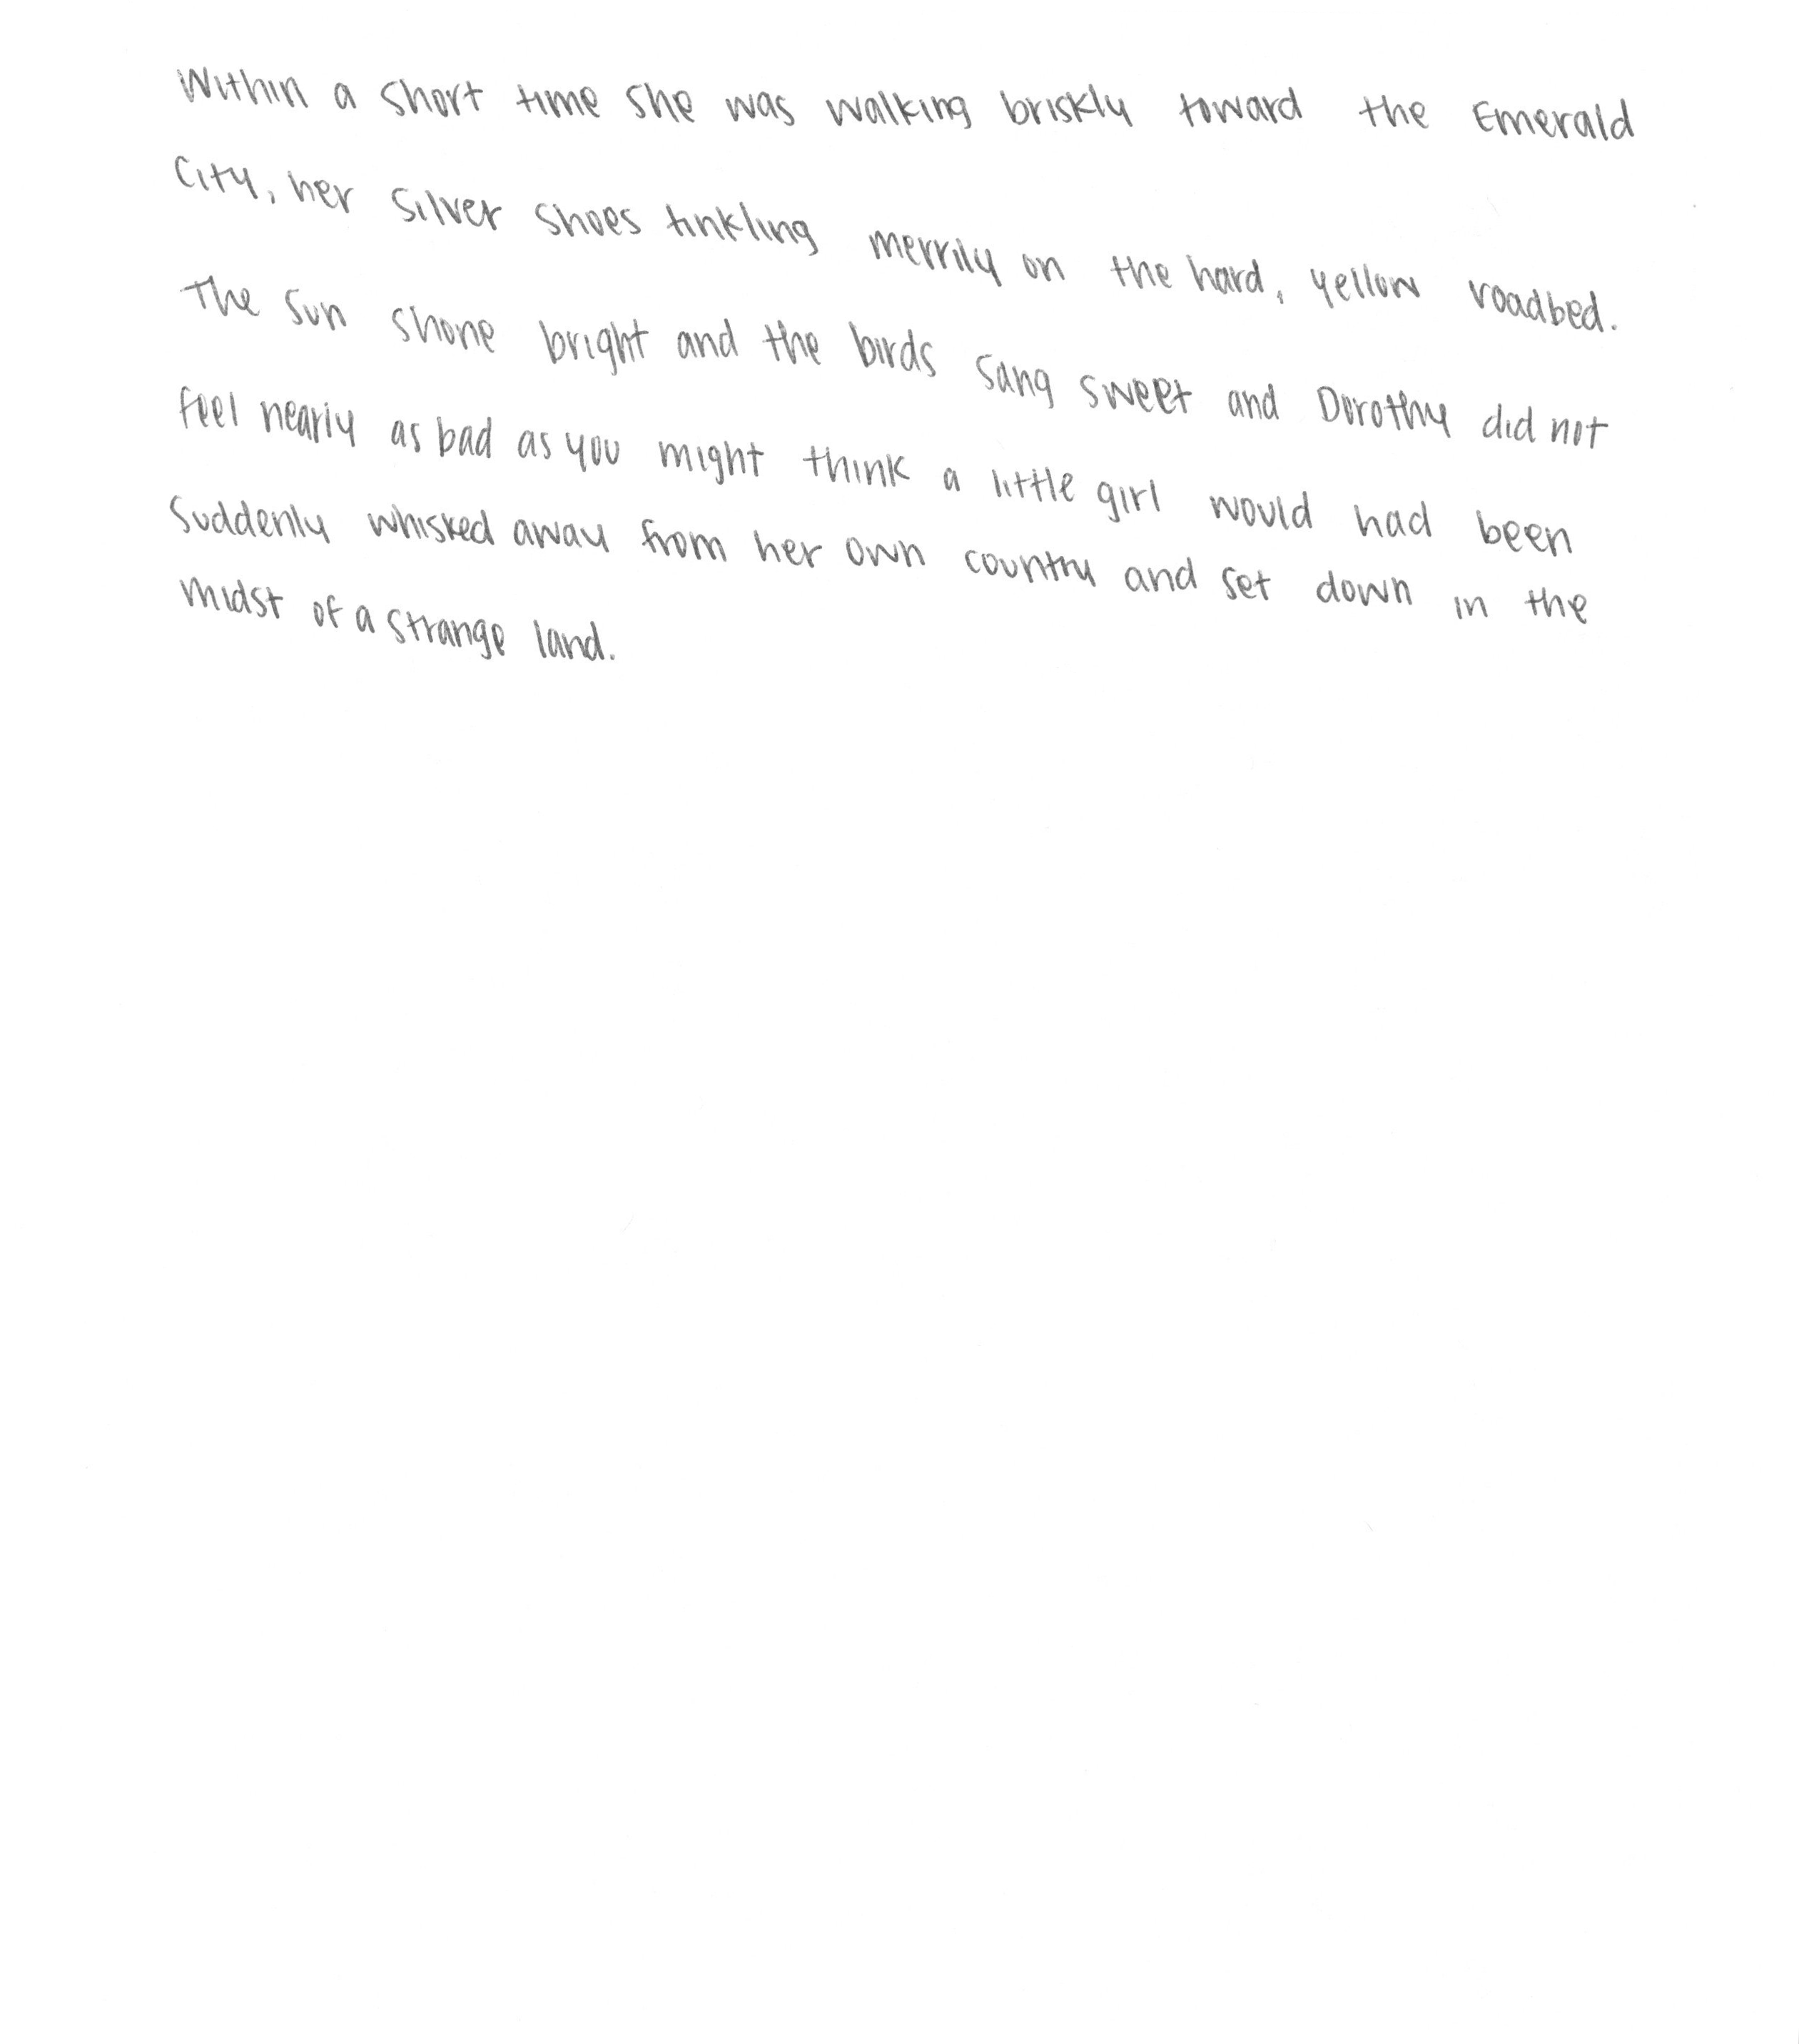 Within a short time she was walking briskly toward the Emerald
City, her Silver Shoes tinkling merrily on the hard, yellow roadbed.
The sun shone bright and the birds sang sweet and Dorothy did not
feel nearly as bad as you might think a little girl would had been
suddenly whisked away from her own country and set down in the
midst of a strange land.